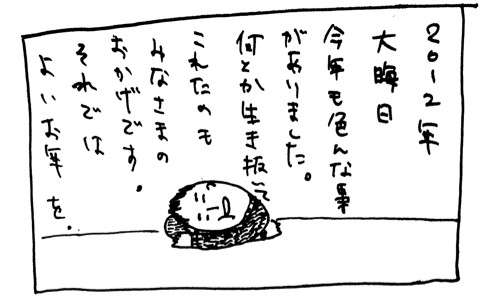 2012年
大晦日
今年も色んな事
がありました。
何とか生き抜いて
これたのも
みなさまの
おかげです。
それでは
よいお年を。